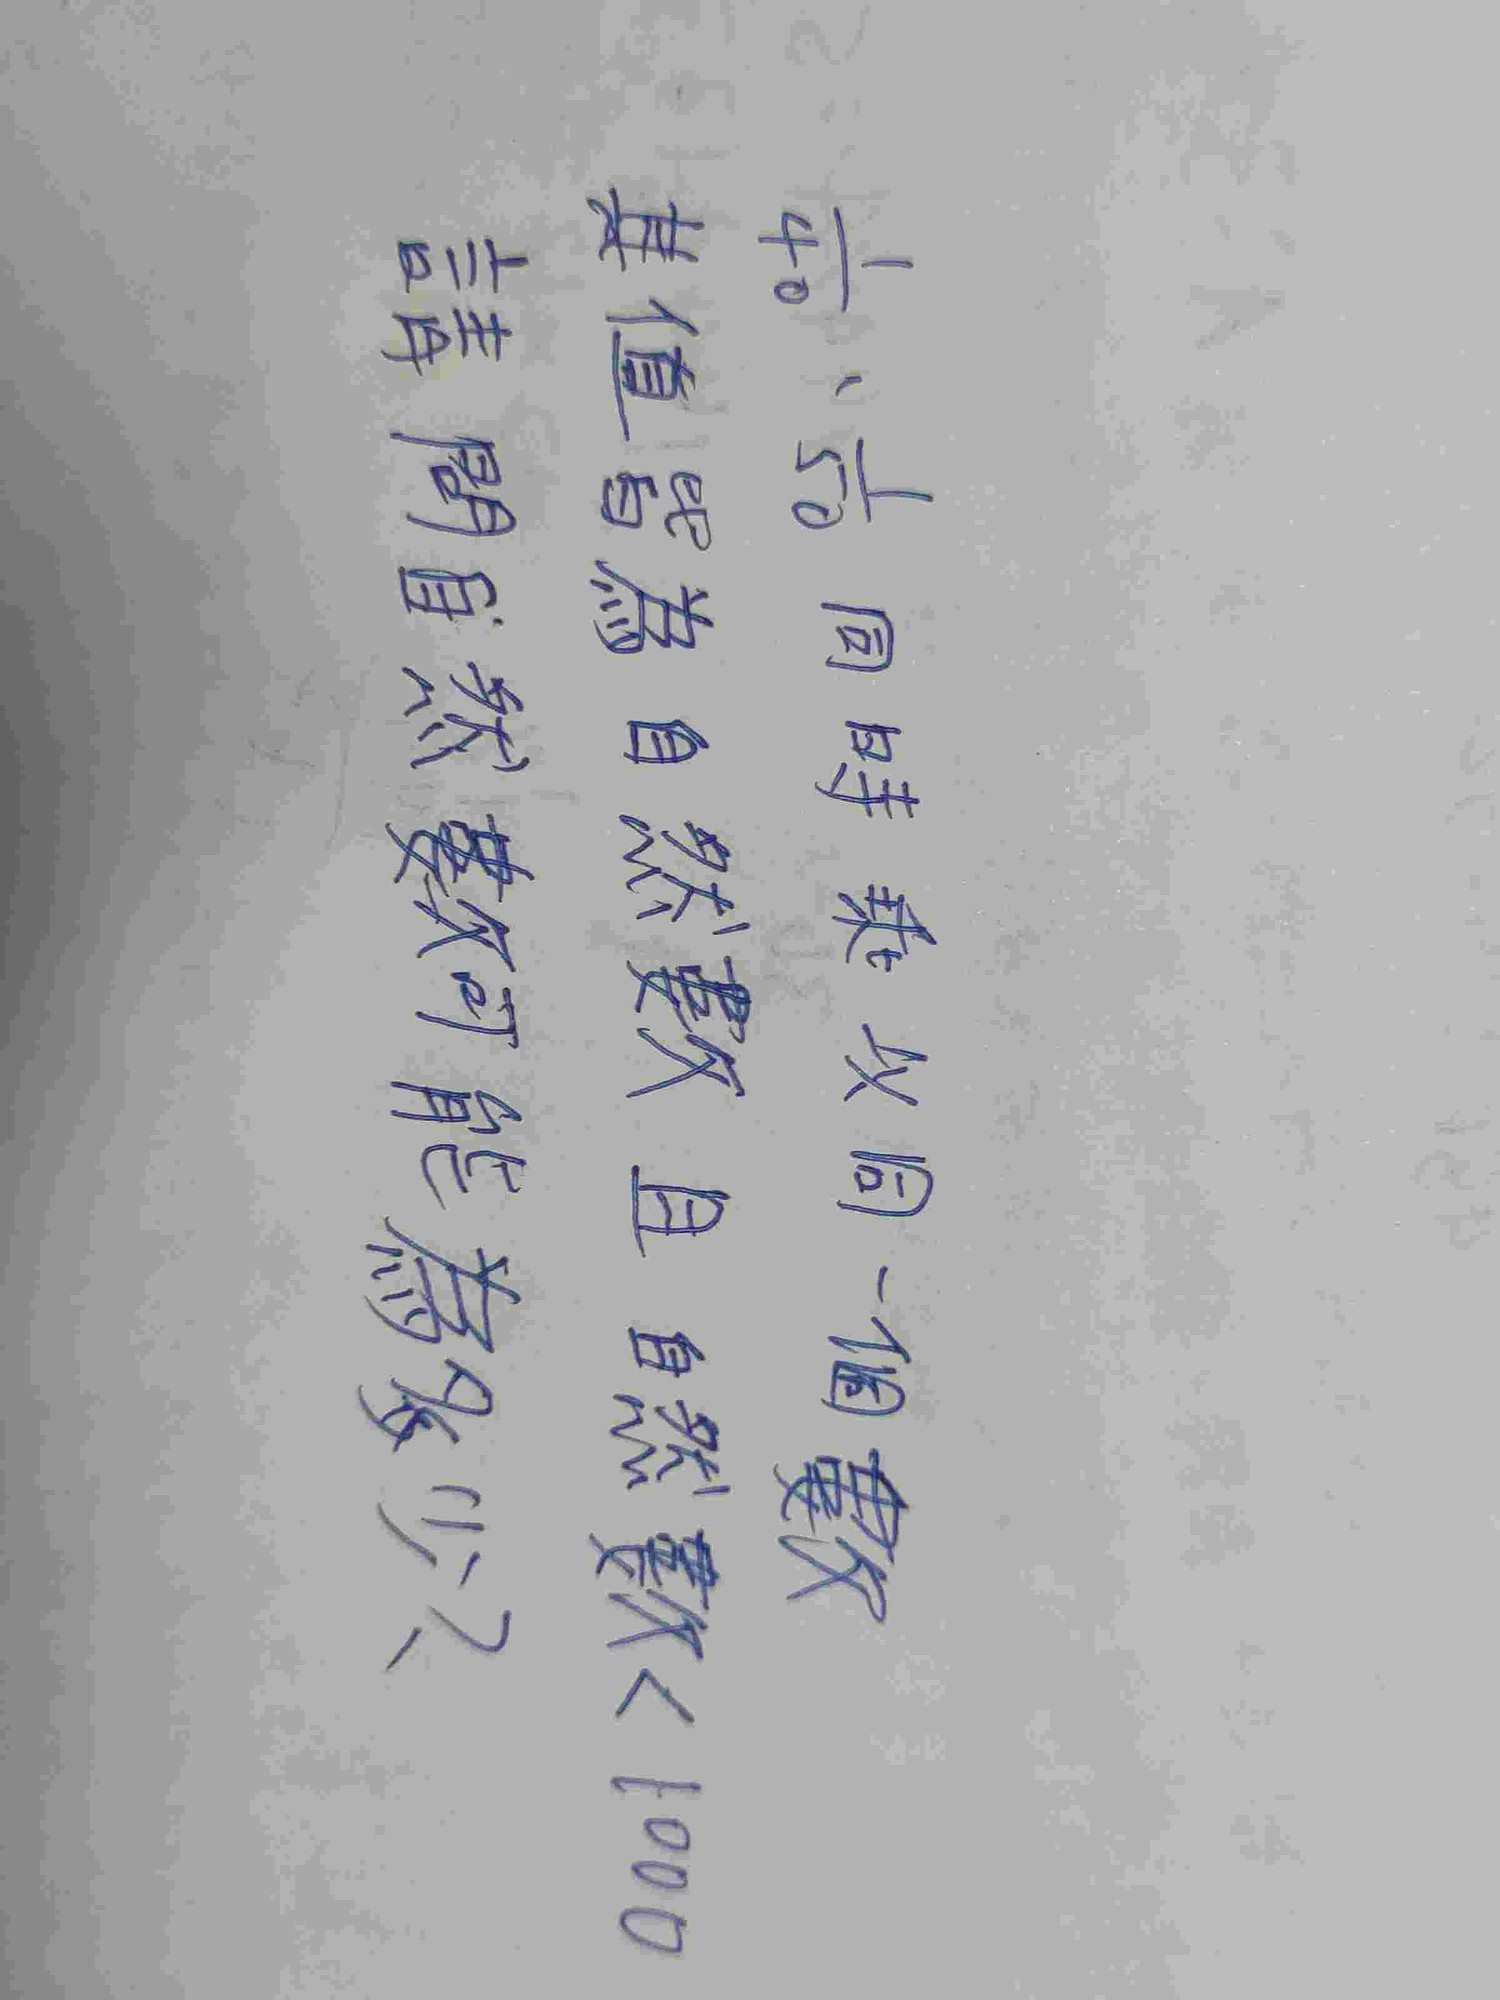 1/40、1/50 同時乘以同一個數
其值皆為自然數且自然數<1000
請問自然數可能為多少?